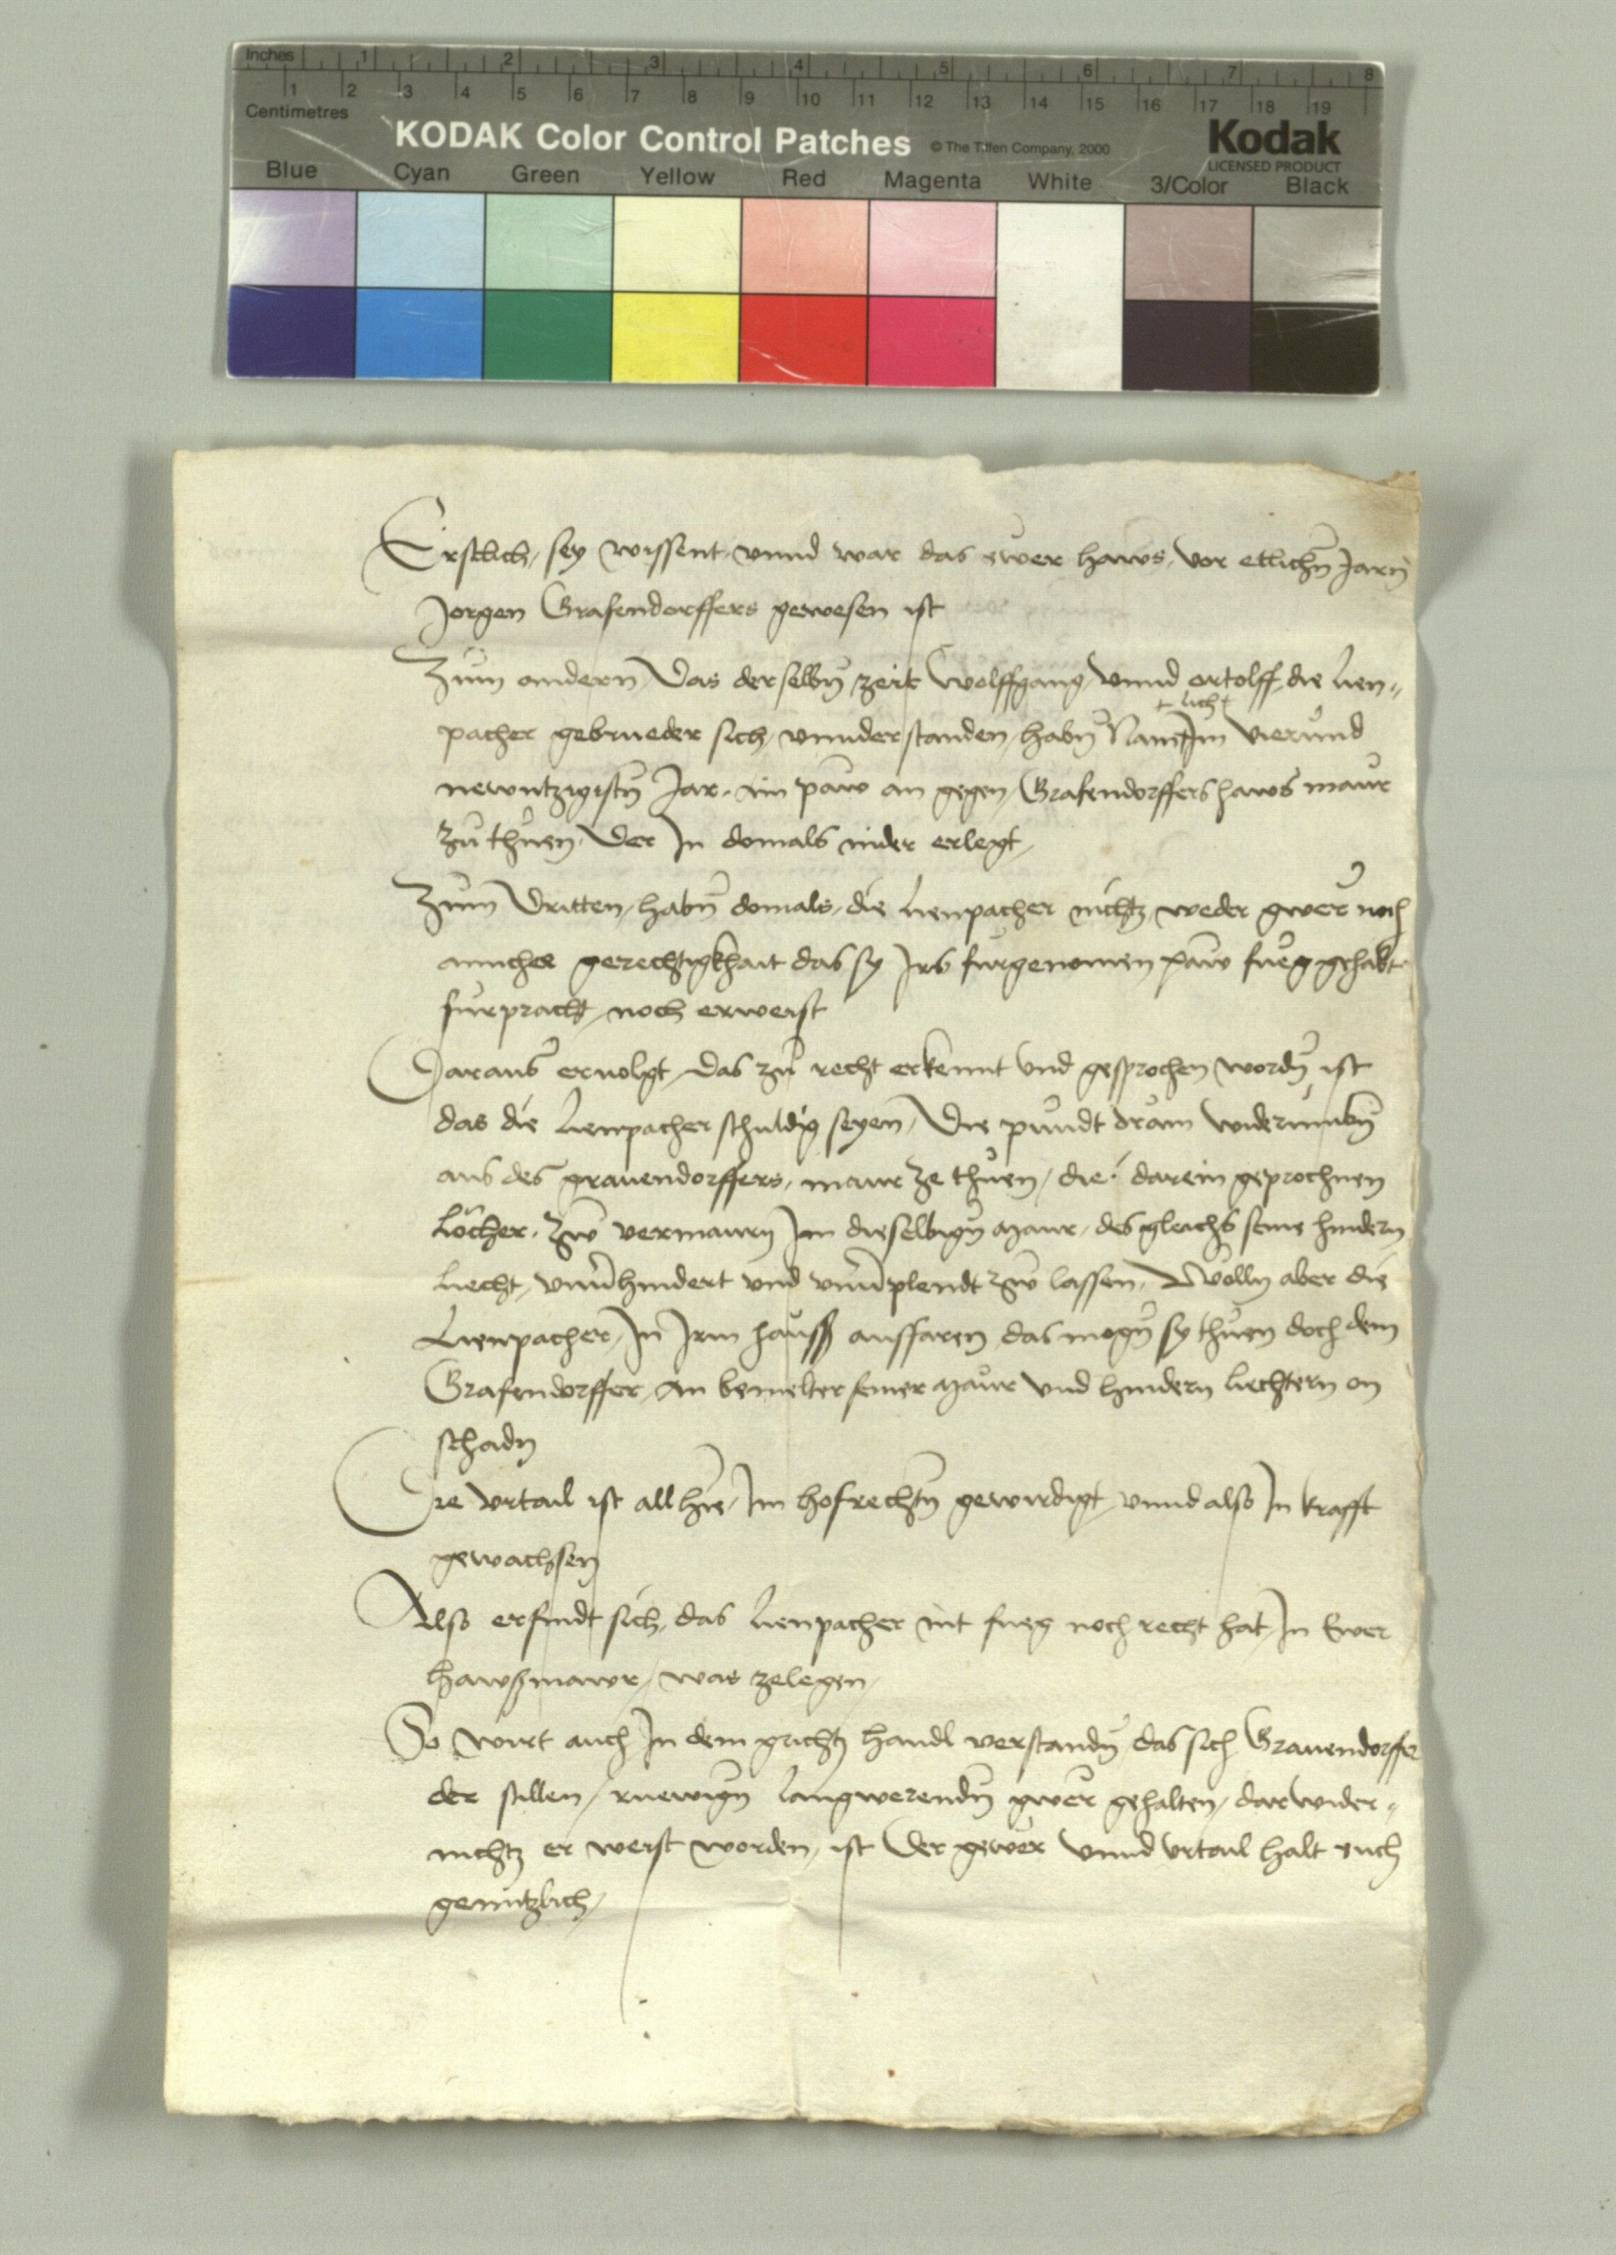 Inches 1 2 3 4 5 6 7 8
1 2 3 4 5 6 7 8 9 10 11 12 13 14 15 16 17 18 19
Centimetres
KODAK Color Control Patches © The Tiffen Company, 2000 Kodak
LICENSED PRODUCT
Blue Cyan Green Yellow Red Magenta White 3/Color Black
Erstlich, sey wissent vnnd war das ewer haws, vor etlichn Jarn
Jorgen Grafendorffers gewesen ist
Zum andern, Das derselbn zeit Wolffgang vnnd ortolff die Lien-
lich
pacher gebrueder sich vnnderstanden habn Namt Im vierund
newntzigistn Jar, ein paw an gegen Grafendorffers haws maur
zu thuen, Der In domals nider erlegt,
Zum Dritten, habn domals, die Lienpacher nichtz weder gwer noch
ainiche gerechtigkhait das sy Irs furgenomen paw fueg gehabt
furpracht, noch erweist
Daraus ervolgt, das zu recht erkennt vnd gesprochen wordn ist
das die Lienpacher schuldig seyen, Die pundt dram widerumbn
aus des grauendorffers, maur ze thuen, die darein geprochnen
Löcher, zw vermaurn Im dieselbign maur, des gleichs seine hindern
liecht, vnuerhindert vnd vnuerplendt zw lassen, Wolln aber die
Lienpacher, In Irm hauss auffaren das mogn sy thuen doch dem
Grafendorffer, an bemelter seiner maur vnd hindern liechtern on
schadn
Die vrtail ist all hie, Im hofrechtn gewirdigt, vnnd also In krafft
gewachsen
Also erfindt sich, das Lienpacher nit fueg noch recht hat, In Ewer
hawsmawr, was zelegen,
So wirt auch In dem grichtz handl verstandn das sich Grauendorffer
der stillen, ruewign langwerendn gwer gehalten, darwider-
nichtz er weist worden, ist Der gewer vnnd vrtail halt euch
genutzlich,